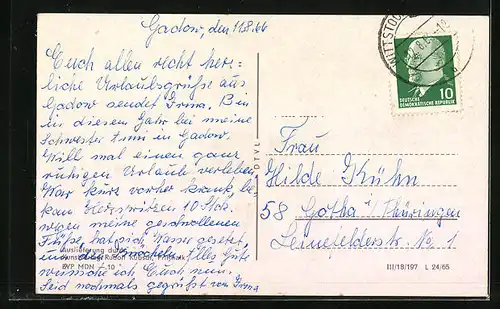 Gadow, den 11.8.66
Euch allen recht herz-
liche Urlaubsgrüße aus
Gadow sendet Irma. Bin
in diesem Jahr bei meine
Schwester Anni in Gadow.
Will mal einen ganz
ruhigen Urlaub verleben
War kurz vorher krank, be
kam Herzspritzen 10 Stck.
wegen meine geschwollenen
Füße, hat sich Wasser gesetzt,
in den Alles Gute
wünsche ich Euch nun.
Seid nochmals gegrüßt von Irma
Auslieferung durch
Rudolf
EVP MDN -,10
DTVL
WITTSTOCK
10
DEUTSCHE
DEMOKRATISCHE REPUBLIK
Frau
Hilde Kühn
58 Gotha Thüringen
Leinefelderstr. No 1
III/18/197 L 24/65